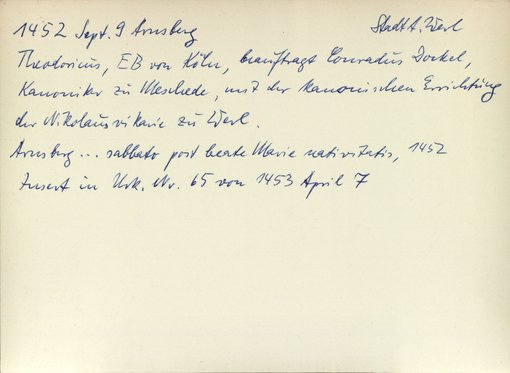 1452 Sept. 9 Arnsberg Stadt A. Werl
Theodoricus, EB von Köln, beauftragt Conradus Dockel,
Kanoniker zu Meschede, mit der kanonischen Errichtung
der Nikolausvikarie zu Werl.
Arnsberg ... sabbato post beate Marie nativitatis, 1452
Insert in Urk. Nr. 65 von 1453 April 7